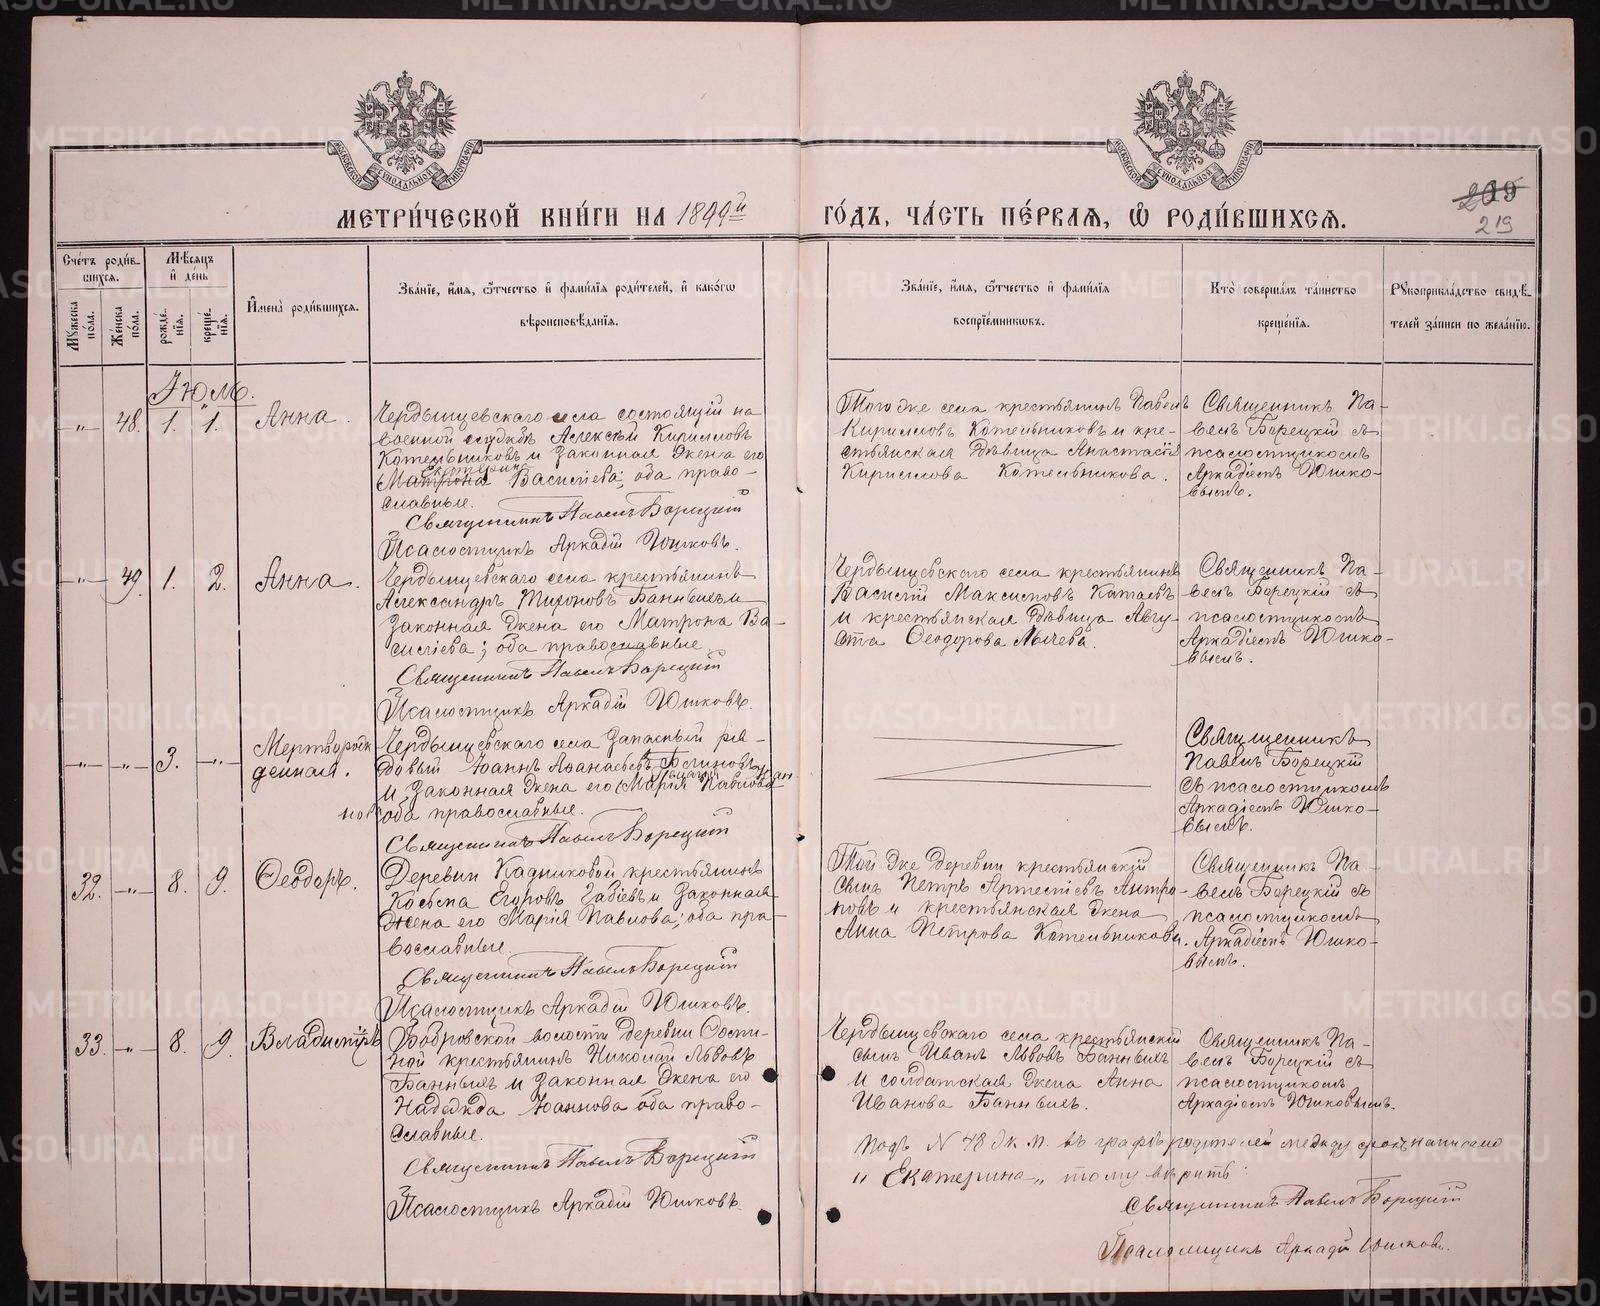 МЕТРИ́ЧЕСКОЙ КНИ́ГИ НА 1899й ГО́ДЪ, ЧА́СТЬ ПЕ́РВАѦ, Ѽ РОДИ́ВШИХСѦ.
219
219
Сче́тъ роди́в-
шихсѧ.
Мꙋжеска по́ла.
Же́нска по́ла.
Мѣ́сѧцъ и де́нь
рожде́-
нїѧ.
креще́-
нїѧ.
Имена̀ роди́вшихсѧ.
Зва́нїе, и́мѧ, ѻ́тчество и фами́лїѧ роди́телей, и како́гѡ
вѣроисповѣ́данїѧ.
Зва́нїе, и́мѧ, ѻ́тчество и фами́лїѧ
воспрїе́мникѡвъ.
Кто̀ соверша́лъ та́инство
креще́нїѧ.
Рꙋкоприкла́дство свидѣ́-
телей за́писи по жела́нїю.
Іюль.
-„- 48. 1. 1. Анна.
Чердынцевскаго села состоящій на
военной службѣ Алексѣй Кирилловъ
Котельниковъ и законная жена его
Екатерина
Матрона Василіева; оба право-
славные.
Священникъ Павелъ Борецкій
Псаломщикъ Аркадій Юшковъ.
Того же села крестьянинъ Павелъ
Кирилловъ Котельниковъ и кре-
стьянская дѣвица Анастасія
Кириллова Котельникова.
Священникъ Па-
велъ Борецкій съ
псаломщикомъ
Аркадіемъ Юшко-
вымъ.
-„- 49. 1. 2. Анна.
Чердынцевскаго села крестьянинъ
Александръ Мироновъ Банныхъ и
законная жена его Матрона Ва-
силіева; оба православные.
Священникъ Павелъ Борецкій
Псаломщикъ Аркадій Юшковъ.
Чердынцевскаго села крестьянинъ
Василій Максимовъ Катаевъ
и крестьянская дѣвица Авгу-
ста Ѳеодорова Лычева.
Священникъ Па-
велъ Борецкій съ
псаломщикомъ
Аркадіемъ Юшко-
вымъ.
-„- -„- 3. -„- Мертворож
денная.
Чердынцевскаго села запасный ря-
довый Іоаннъ Аѳанасьевъ
и законная жена его Марія Павлова
оба православные.
Священникъ Павелъ Борецкій
Священникъ
Павелъ Борецкій
съ псаломщикомъ
Аркадіемъ Юшко-
вымъ.
32. -„- 8. 9. Ѳеодоръ.
Деревни Кадниковой крестьянинъ
Косьма Егоровъ Бабіевъ и законная
жена его Марія Павлова; оба пра-
вославные
Священникъ Павелъ Борецкій
Псаломщикъ Аркадій Юшковъ.
Той же деревни крестьянскій
сынъ Петръ Артеміевъ Антро-
повъ и крестьянская жена
Анна Петрова Котельникова.
Священникъ Па-
велъ Борецкій съ
псаломщикомъ
Аркадіемъ Юшко-
вымъ.
33. -„- 8. 9. Владиміръ
Бобровской волости деревни Сосно-
вой крестьянинъ Николай Львовъ
Банныхъ и законная жена его
Надежда Іоаннова оба право-
славные.
Священникъ Павелъ Борецкій
Псаломщикъ Аркадій Юшковъ.
Чердынцевскаго села крестьянскій
сынъ Иванъ Львовъ Банныхъ
и солдатская жена Анна
Иванова Банныхъ.
Священникъ Па-
велъ Борецкій съ
псаломщикомъ
Аркадіемъ Юшковымъ.
Подъ N 48 ж. п. въ графѣ родителей между строкъ написано
„Екатерина„ тому вѣрить:
Священникъ Павелъ Борецкій
Псаломщикъ Аркадій Юшковъ.
METRIKI.GASO-URAL.RU